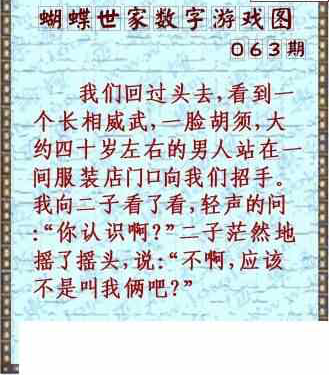 蝴蝶世家数字游戏图
063期
我们回过头去,看到一
个长相威武,一脸胡须,大
约四十岁左右的男人站在一
间服装店门口向我们招手。
我向二子看了看,轻声的问
:“你认识啊?”二子茫然地
摇了摇头,说:“不啊,应该
不是叫我俩吧?”